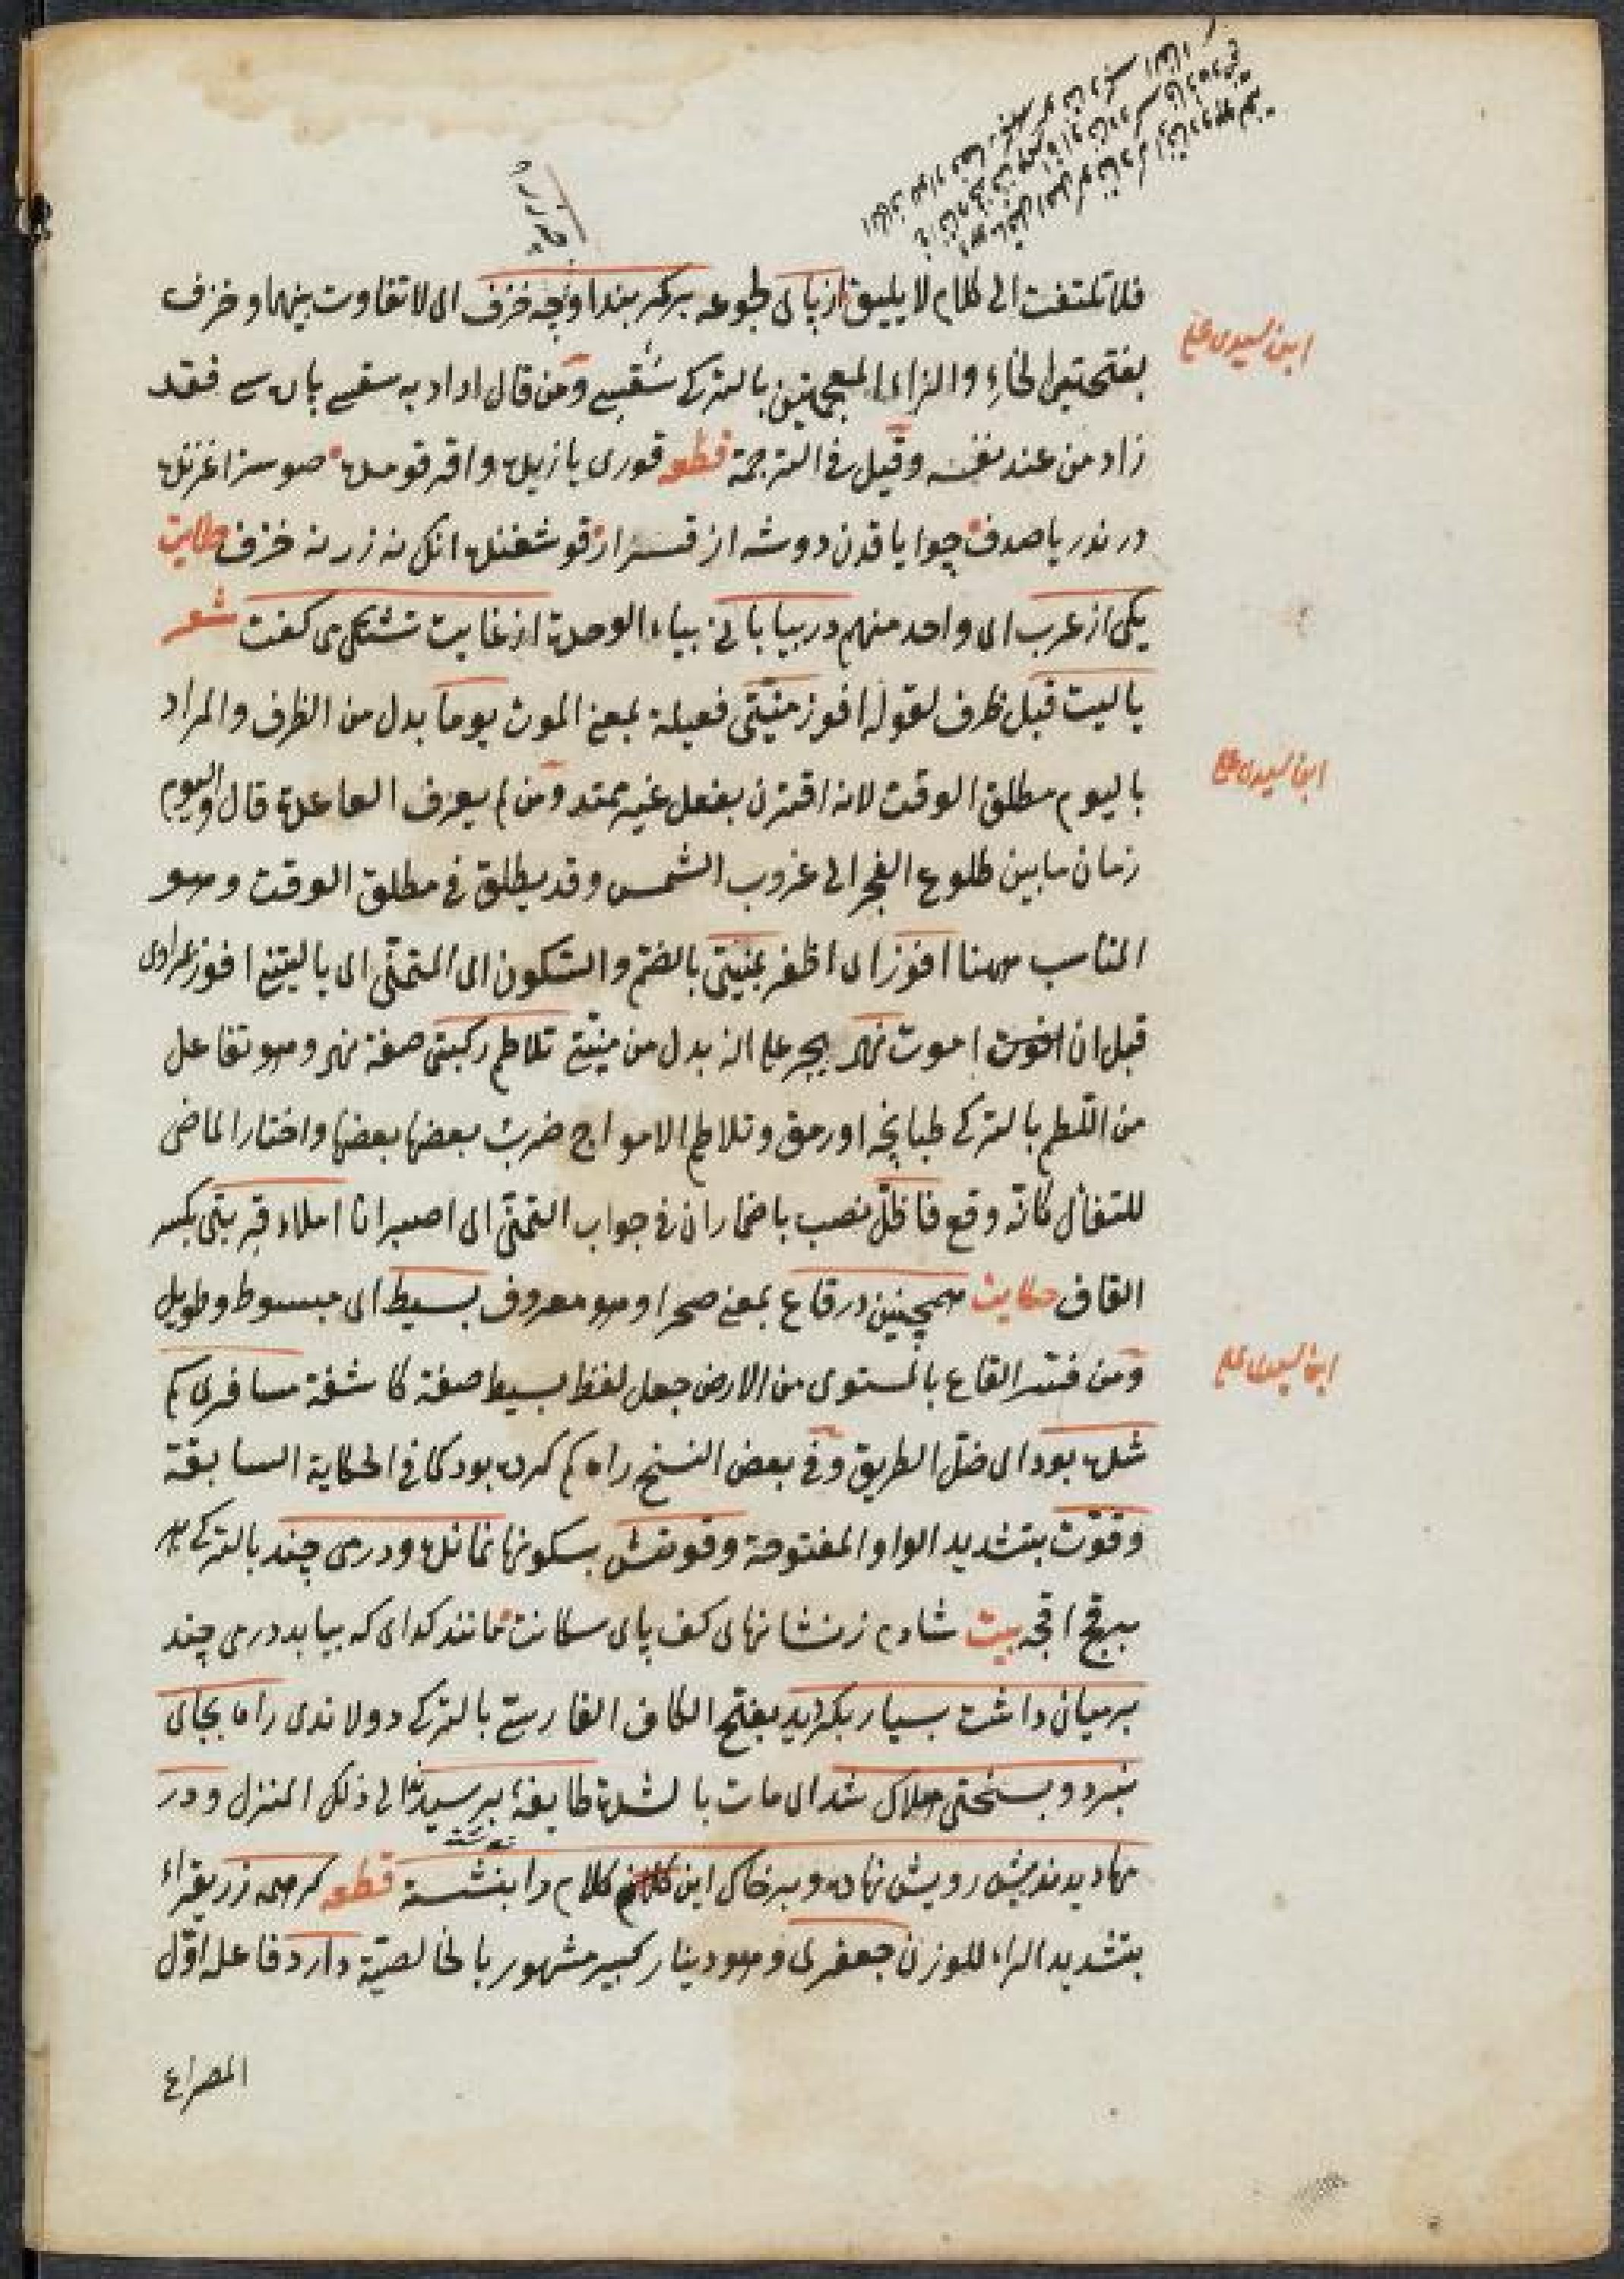 فلا تلتفت الى كلام لا يليق از پاى بجوعه بر كمر بند او چه خزف اى لا تفاوت بينهما وخزف
بفتحتين الخاء والزاى المعجمتين بالتركى سقسى ومن قال اراد به سقسى پاره سى فقد
زاد من عند نفسه وقيل فى الترجمة قطعه قورى يازيده واقر قومده صوسز اغزنده
در ندر يا صدف چو اياقدن دوشه از قسز ار قوشغنده انك نه زر نه خزف حكايت
يكى از عرب اى واحد منهم در بيابانى بياء الوحدة از غايت تشنگى مى كفت شعر
يا ليت قبل ظرف لقوله افوز منيتى فعيلة بمعنى الموت يوما بدل من الظرف والمراد
باليوم مطلق الوقت لانه اقترن بفعل غير ممتد ومن لم يعرف القاعدة قال واليوم
زمان ما بين طلوع الفجر الى غروب الشمس وقد يطلق فى مطلق الوقت وهو
المناسب ههنا افوز اى اظفر بمنيتى بالضم والسكون اى المتمنّى اى يا ليتنى افوز بمرادى
قبل ان اموت نهر بجر على انه بدل من منيتى تلاطم ركبتى صفة نهر وهو تفاعل
من اللطم بالتركى طبانچه اورمق وتلاطم الامواج ضرب بعضها بعضها واختار الماضى
للتفأل كانّه وقع فاظلّ نصب باضمار ان فى جواب التمنّى اى اصير انا املاء قربتى بكسر
القاف حكايت همچنين در قاع بمعنى صحرا وهو معروف بسيط اى مبسوط وطويل
ومن فسّر القاع بالمستوى من الارض جعل لفظ بسيط صفة كاشفة مسافرى كم
شده بود اى ضلّ الطريق وفى بعض النسخ راه كم كرده بود كما فى الحكاية السابقة
وقوّت بتشديد الواو المفتوحة وقوتش بسكونها نمانده ودرمى چند بالتركى بر
بيرقچ اقچه بيت شادم ز نشانهاى كف پاى سكانت مانند كداى كه بيابد درمى چند
بر ميان داشت بسيار بكرديد بفتح الكاف الفارسى بالتركى دولاندى راه بجاى
نبرد وبسختى هلاك شد اى مات بالشدة طايفه برسيدند الى ذلك المنزل ودر
مها ديدند پيش رويش نهاده وبر خاك اين كلام را بنشسته قطعه كر همه زر بقراء
نوشته
بتشديد الراء للوزن جعفرى وهو دينار كبير مشهور بالخالصيّة دارد فاعله اوّل
المصراع
ابن سيدى على
ابن سيدى على
ابن سيدى على